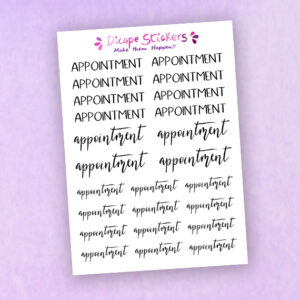 Dicope Stickers
Make them Happen!!
APPOINTMENT APPOINTMENT
APPOINTMENT APPOINTMENT
APPOINTMENT APPOINTMENT
APPOINTMENT APPOINTMENT
appointment appointment
appointment appointment
appointment appointment appointment
appointment appointment appointment
appointment appointment appointment
appointment appointment appointment